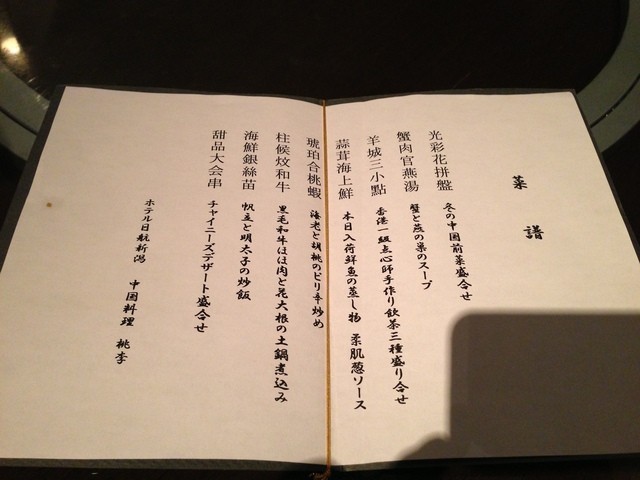 菜譜
光彩花拼盤
冬の中国前菜盛合せ
蟹肉官燕湯
蟹と燕の巣のスープ
羊城三小點
香港一級点心師手作り飲茶三種盛り合せ
蒜茸海上鮮
本日入荷鮮魚の蒸し物 柔肌葱ソース
琥珀合桃蝦
海老と胡桃のピリ辛炒め
柱候炆和牛
黒毛和牛ほほ肉と花大根の土鍋煮込み
海鮮銀絲苗
帆立と明太子の炒飯
甜品大会串
チャイニーズデザート盛合せ
ホテル日航新潟 中国料理 桃李